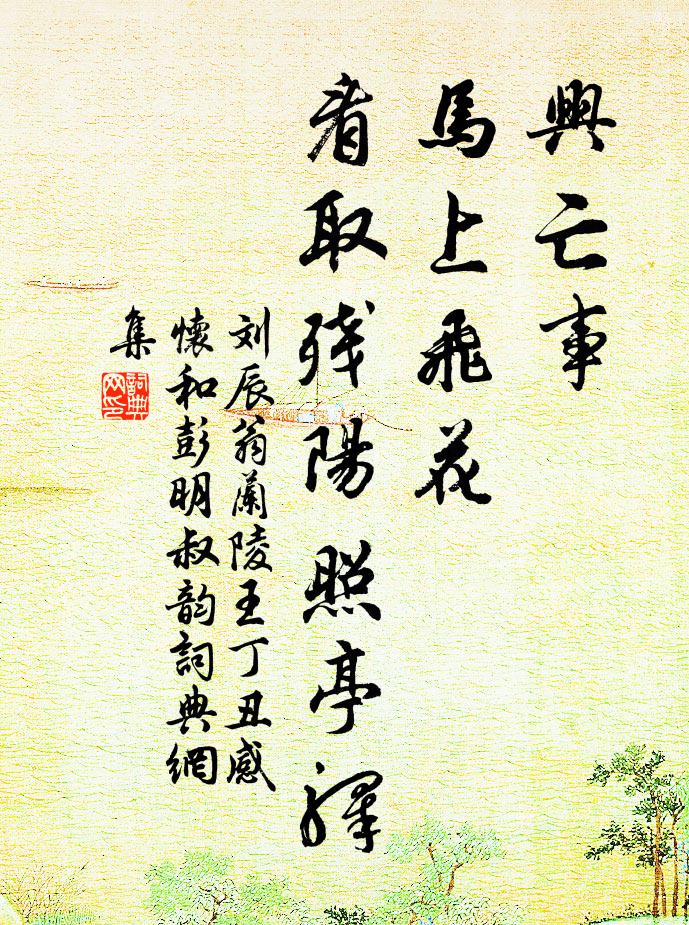 興亡事
馬上飛花
看取残陽照亭驛
刘辰翁蘭陵王丁丑感
懷和彭明叔韵詞典網
集
詞典网印